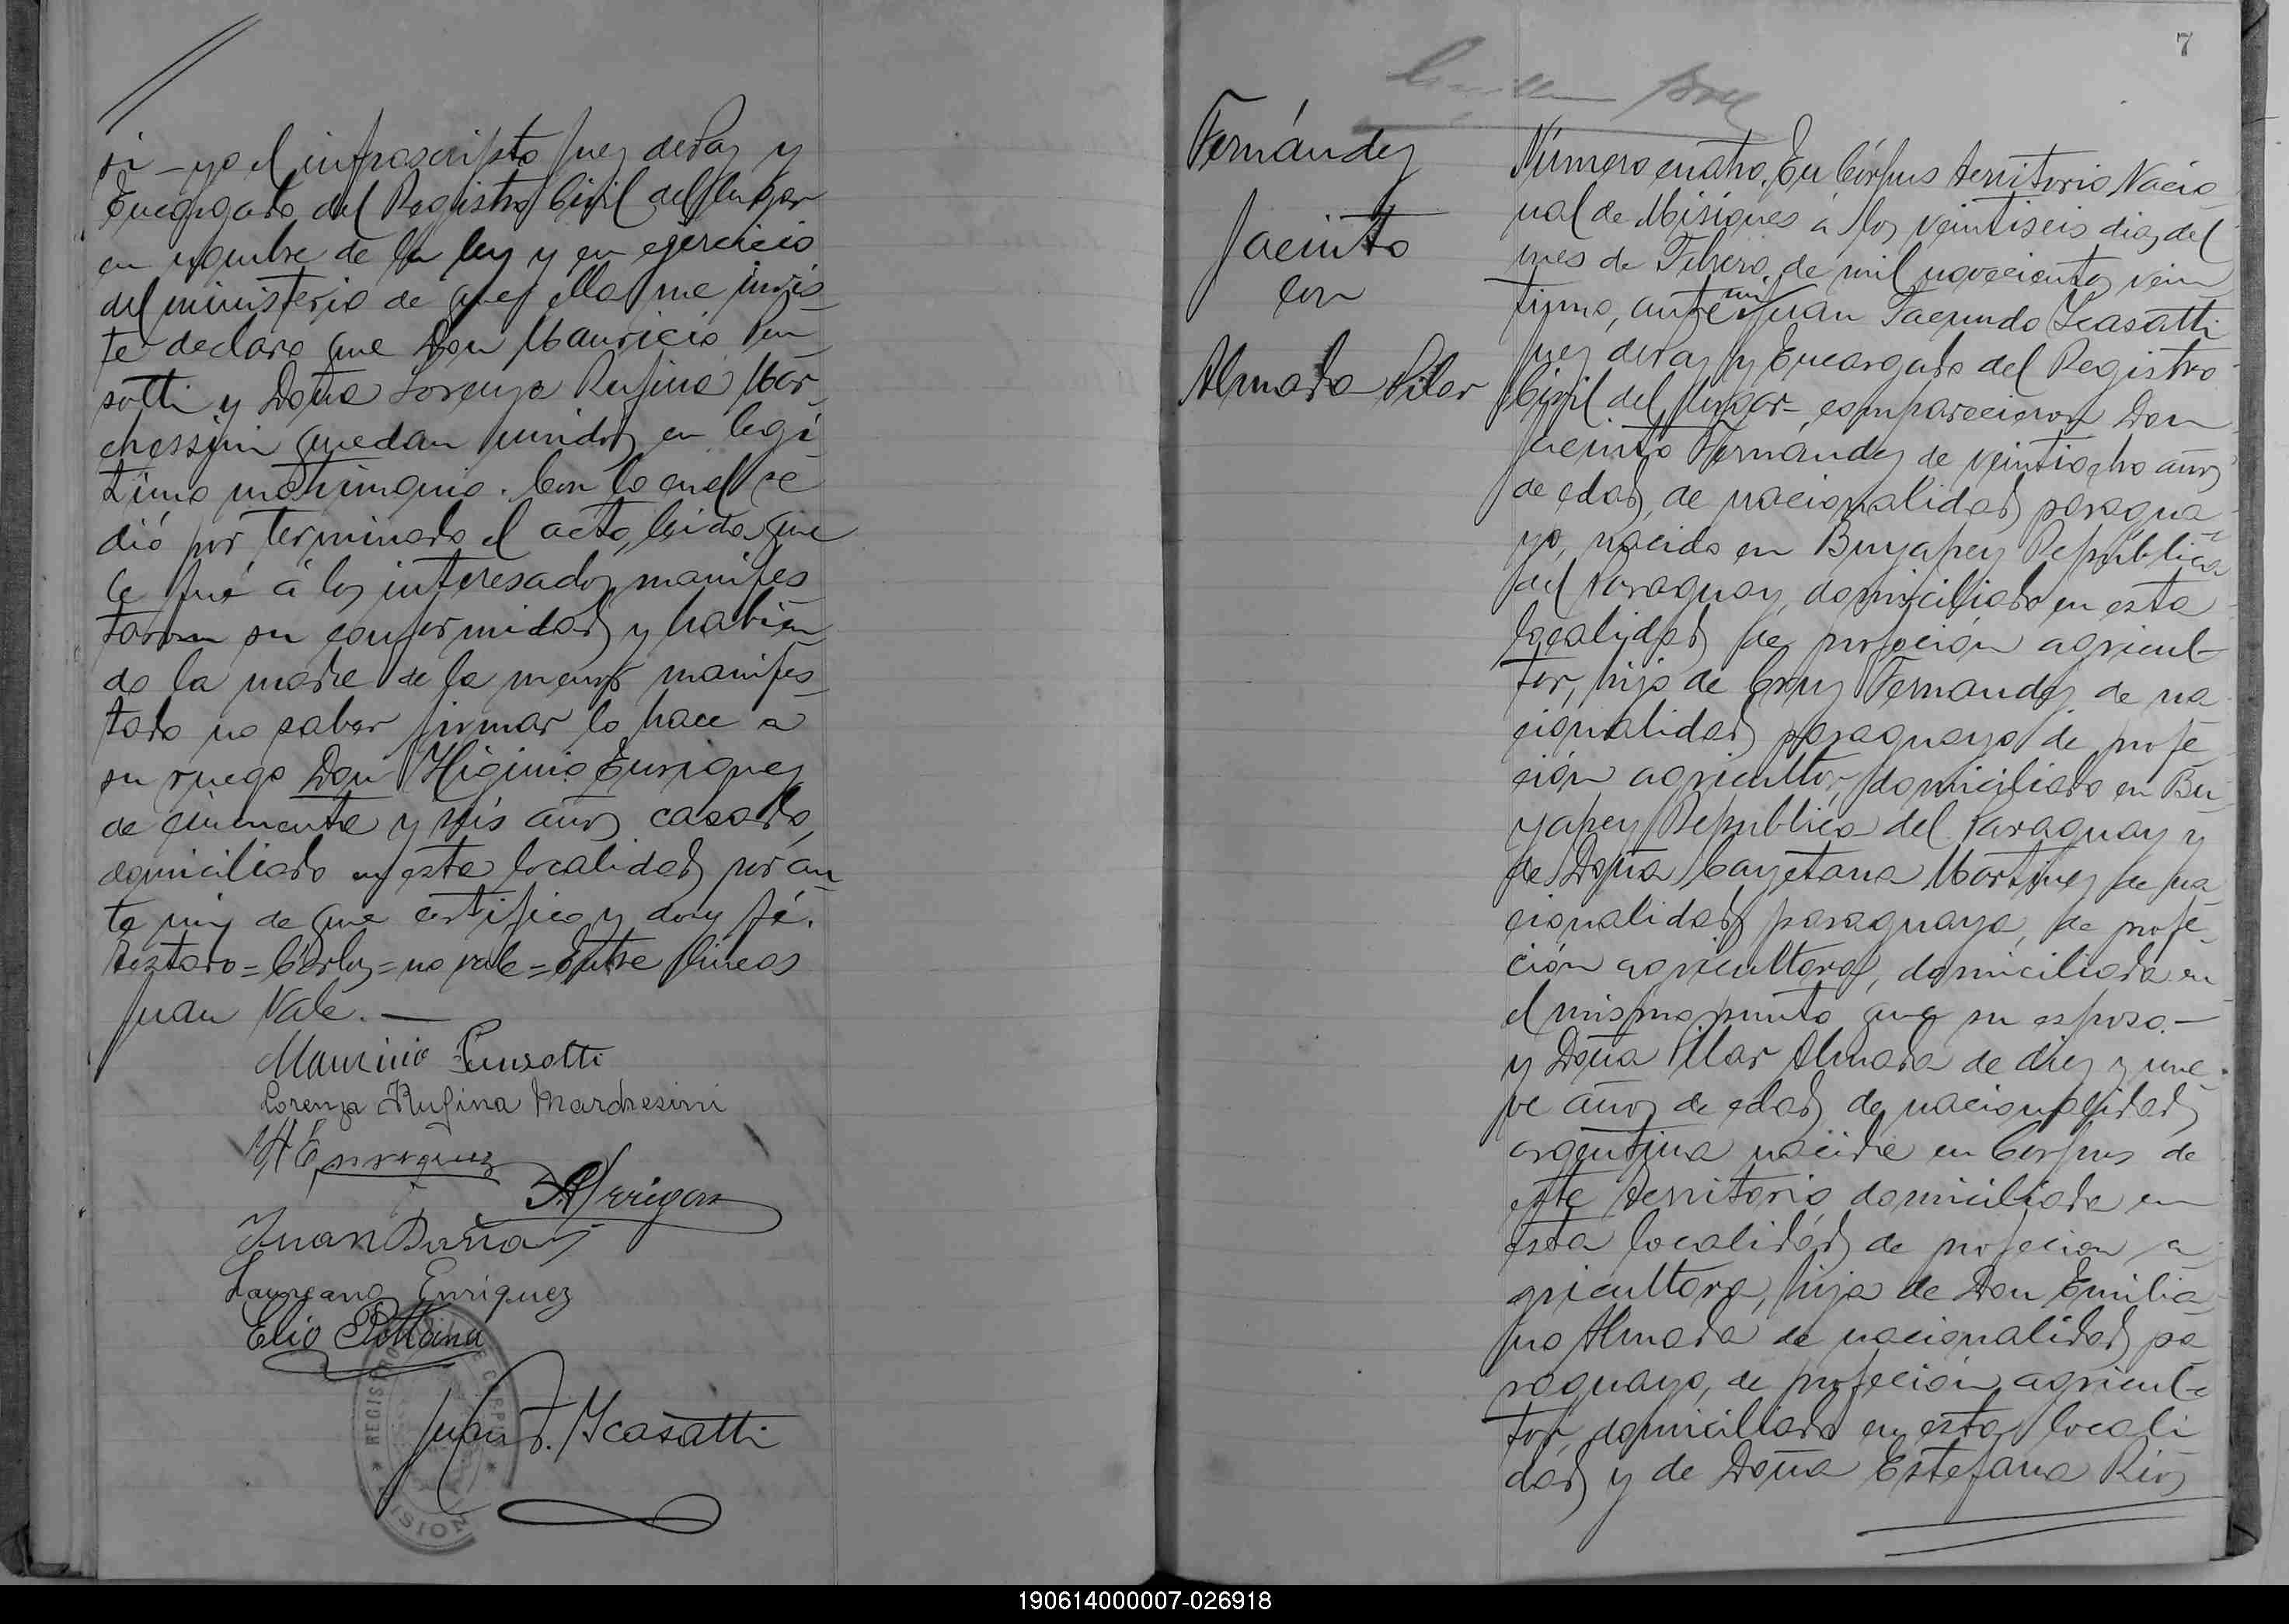 si – yo el infrascripto Juez de Paz y
Encargado del Registro Civil del lugar
en nombre de la ley y en ejercicio
del ministerio de que ella me invis-
te declaro que Don Mauricio Pun
sotti y Doña Lorenza Rufina Mar
chessini quedan unidos en legí
timo matrimonio. Con lo cual se
dió por terminado el acto, leida que
le fué á los interesados, manifes
taron su conformidad y habien
do la madre de la menor manifes
tado no saber firmar lo hace a
su ruego Don Higinio Enriquez
de cincuenta y seis años casado,
domiciliado en esta localidad por an
te mi, de que certifico y doy fé.
Testado = Carlos = no vale = Entre lineas
Juan Vale. —
Mauricio Punsotti
Lorenza Rufina Marchesini
H Enriquez
Juan
Laureano Enriquez
Elio
Juan F. Scasatti
REGISTRO
7
Fernández
Jacinto
con
Almada Pilar
Número cuatro. En Córpus territorio Nacio
nal de Misiones á los veintiseis dias del
mes de Febrero de mil novecientos vein
tiuno, ante mi Juan Facundo Scasatti
Juez de Paz y Encargado del Registro
Civil del lugar – comparecieron Don
Jacinto Fernández de veintiocho años
de edad, de nacionalidad paragua
yo, nacido en Buyapey República
del Paraguay, domiciliado en esta
localidad de profeción agricul-
tor, hijo de Cruz Fernandez de na
cionalidad paraguayo de profe
ción agricultor, domiciliado en Bu
yapey República del Paraguay y
de Doña Cayetana Martinez de na
cionalidad paraguaya, de profe
ción agricultora, domiciliada en
el mismo punto que su esposo. —
y Doña Pilar Almada de diez y nue
ve años de edad de nacionalidad
argentina nacida en Corpus de
este territorio domiciliada en
esta localidad de profecion a
gricultora, hija de Don Emilia
no Almada de nacionalidad pa
raguayo, de profeción agricul-
tor, domiciliado en esta locali
dad y de Doña Estefana Rios
190614000007-026918